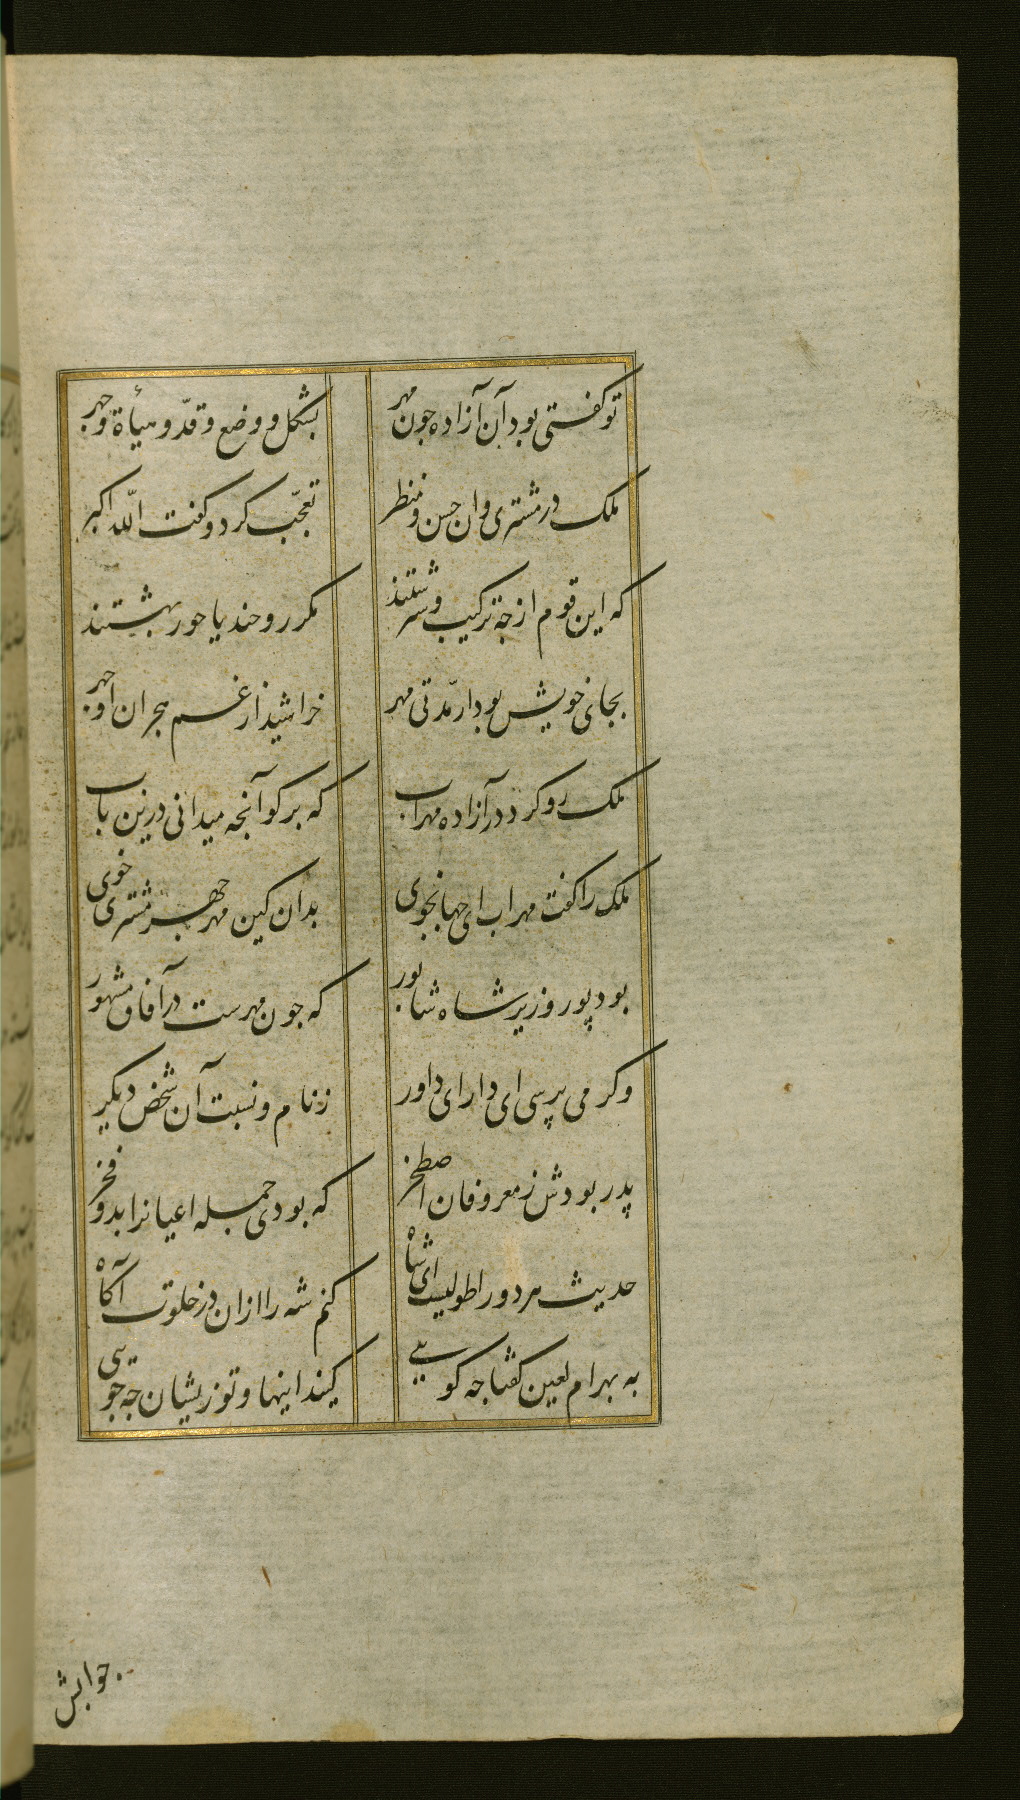 تو کفتی بود آن آزاده جون مهر
بشکل و وضع و قدّ و هیأة و جهر
ملک در مشتری وان حسن و منظر
تعجّب کرد و کفت اللّه اکبر
که این قوم از جه ترکیب و سرشتند
مکر روحند یا حور بهشتند
بجای خویش بود ار مدّتی مهر
خراشید از غم هجران او جهر
ملک رو کرد در آزاده مهراب
که برکو آنجه میدانی درین باب
ملک را کفت مهراب ای جهانجوی
بدان کین مهر جهر مشتری خوی
بود پور وزیر شاه شابور
که جون مهرست در آفاق مشهور
وکر می پرسی ای دارای داور
ز نام و نسبت آن شخص دیکر
پدر بودش ز معروفان اصطخر
که بودی جمله اعیانرا بدو فخر
حدیث هر دو را طولیست ای شاه
کنم شه را ازان در خلوت آکاه
به بهرام لعین کفتا جه کویی
کیند اینها و تو زیشان جه جویی
جوابش